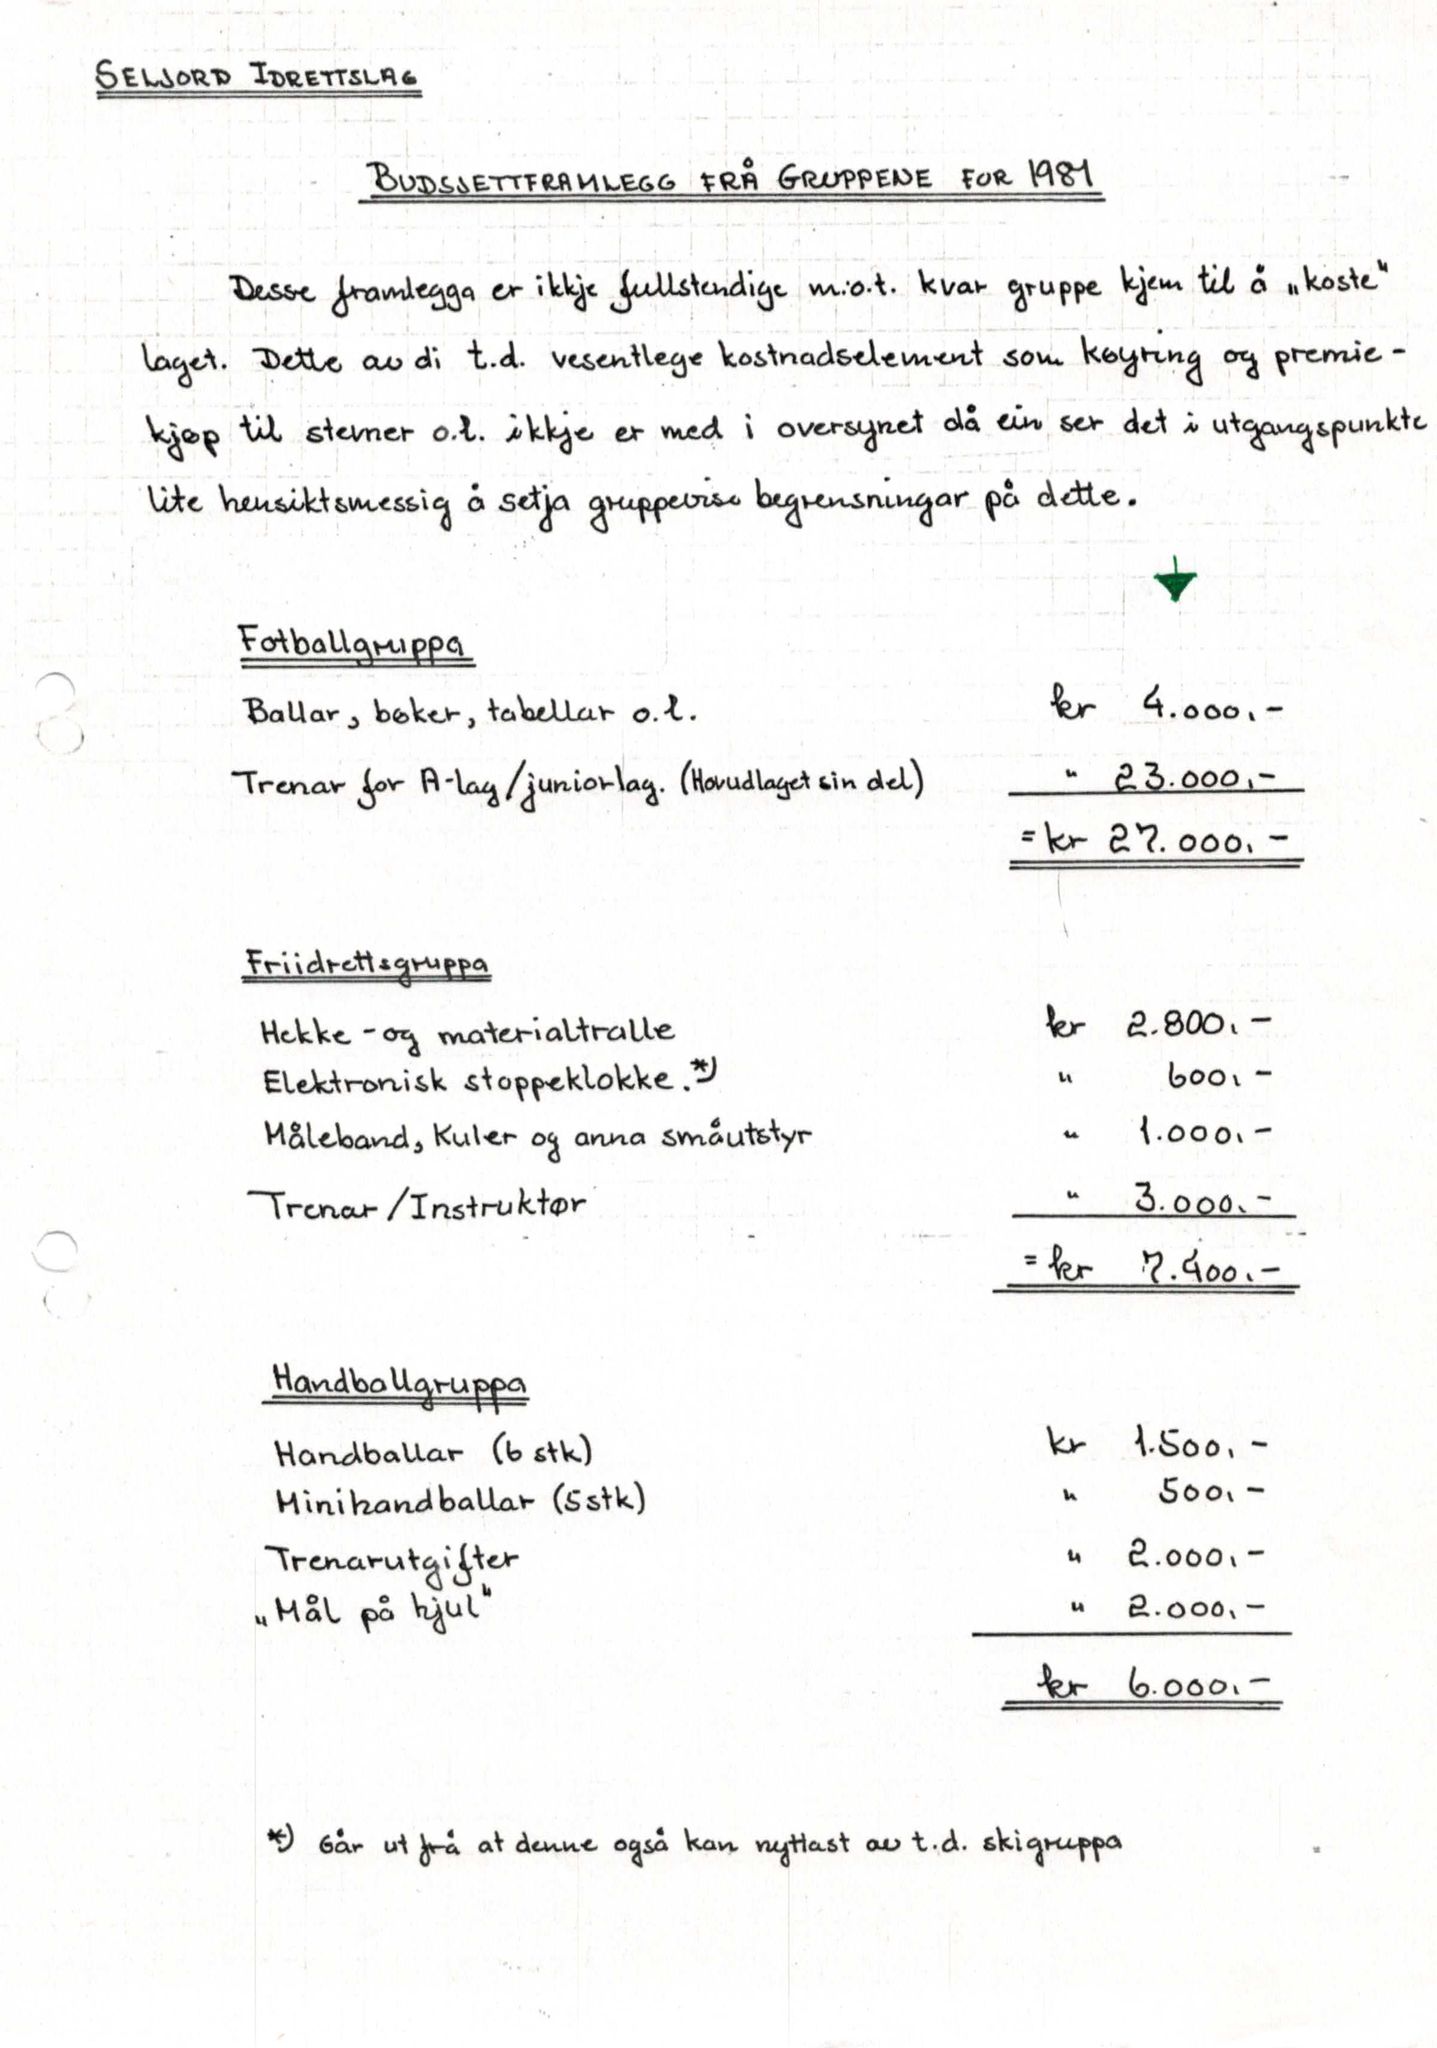 SELJORD IDRETTSLAG
BUDSJETTFRAMLEGG FRÅ GRUPPENE FOR 1981
Desse framlegga er ikkje fullstendige m.o.t. kvar gruppe kjem til å „koste"
laget. Dette av di t.d. vesentlege kostnadselement som køyring og premie-
kjøp til stevner o.l. ikkje er med i oversynet då ein ser det i utgangspunkte
lite hensiktsmessig å setja gruppevise begrensningar på dette.
Fotballgruppa
Ballar, bøker, tabellar o.l. kr 4.000,-
Trenar for A-lag/juniorlag. (Hovudlaget sin del) " 23.000,-
= kr 27.000,-
Friidrettsgruppa
Hekke- og materialtralle kr 2.800,-
Elektronisk stoppeklokke.*) " 600,-
Måleband, Kuler og anna småutstyr " 1.000,-
Trenar/Instruktør " 3.000,-
= kr 7.400,-
Handballgruppa
Handballar (6 stk) kr 1.500,-
Minihandballar (5 stk) " 500,-
Trenarutgifter " 2.000,-
„Mål på hjul" " 2.000,-
kr 6.000,-
*) Går ut frå at denne også kan nyttast av t.d. skigruppa